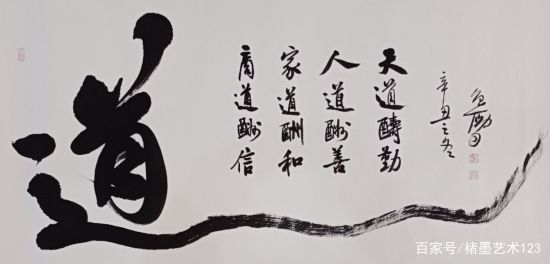 道
天道醻勤
人道酬善
家道酬和
商道酬信
辛丑之冬
百家号/楮墨艺术123